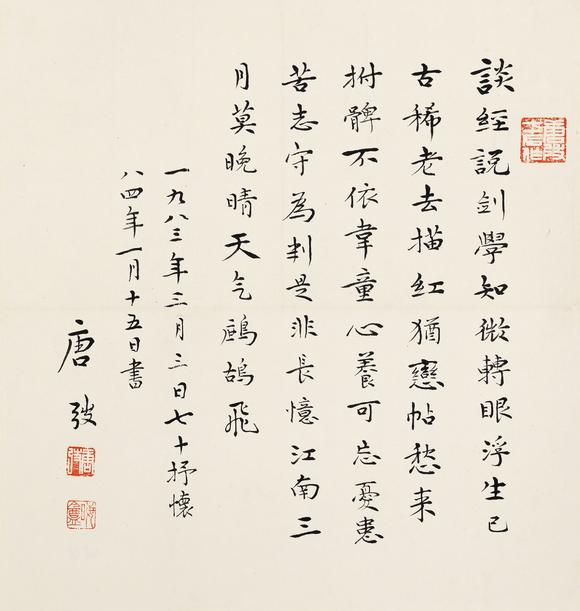 談經説劍學知微轉眼浮生已
古稀老去描紅猶戀帖愁来
拊髀不依韋童心養可忘憂患
苦志守為判是非長憶江南三
月莫晚晴天气鷓鴣飛
一九八三年三月三日七十抒懷
八四年一月十五日書
唐弢